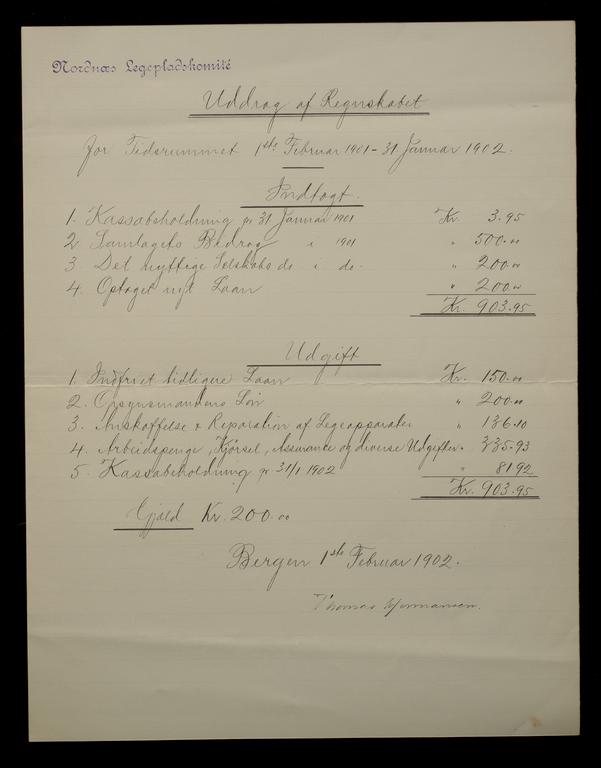 Nordnæs Legepladskomité
Uddrag af Regnskabet
for Tidsrummet 1ste Februar 1901 - 31 Januar 1902.
Indtægt.
1. Kassabeholdning pr 31 Januar 1901 Kr. 3.95
2 Samlagets Bidrag i 1901 " 500.00
3 Det nyttige Selskabs do i do. " 200.00
4. Optaget nyt Laan " 200.00
Kr. 903.95
Udgift
1. Indfriet tidligere Laan Kr. 150.00
2. Opsynsmandens Løn " 200.00
3. Anskaffelse & Reparation af Legeapparater " 136.10
4. Arbeidspenge, Kjørsel, Assurance og diverse Udgifter " 335.93
5. Kassabeholdning pr 31/1 1902 " 81.92
Kr. 903.95
Gjæld Kr. 200.00
Bergen 1ste Februar 1902.
Thomas